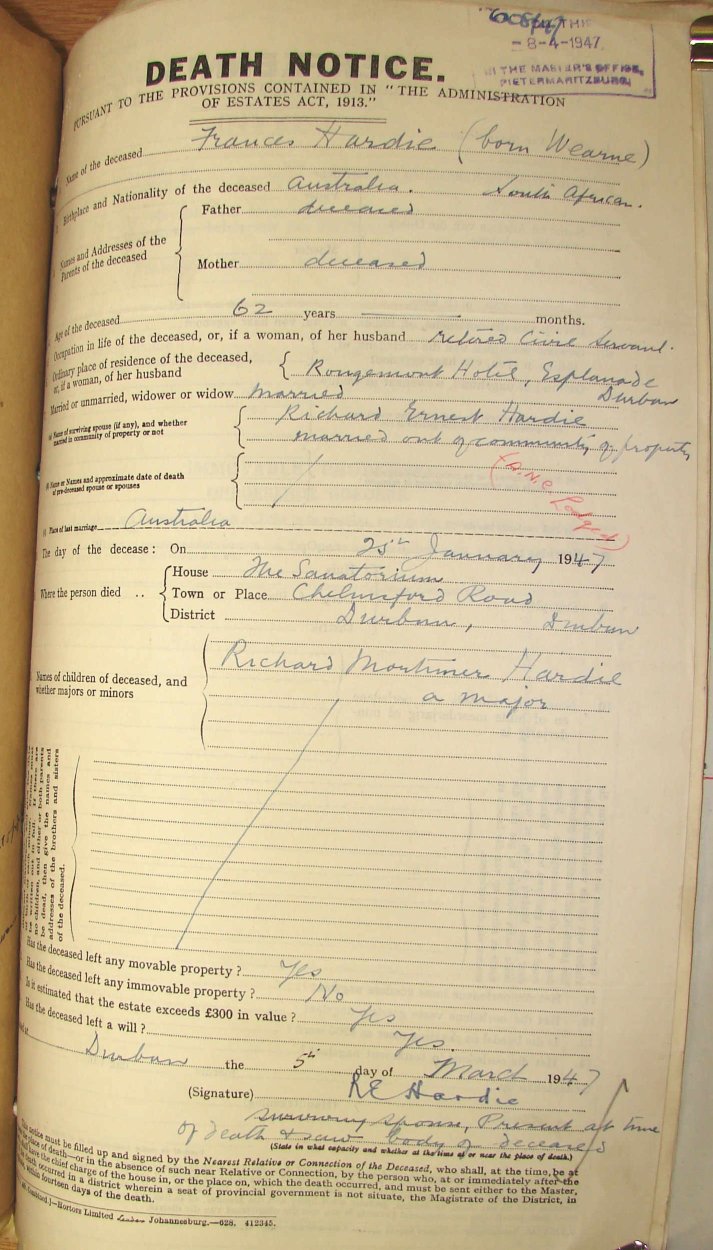 608/47
THE
-8-4-1947
IN THE MASTER'S OFFICE,
PIETERMARITZBURG
DEATH NOTICE.
PURSUANT TO THE PROVISIONS CONTAINED IN "THE ADMINISTRATION
OF ESTATES ACT, 1913."
Name of the deceased Frances Hardie (born Wearne)
Birthplace and Nationality of the deceased Australia. South African.
Names and Addresses of the
Parents of the deceased
Father deceased
Mother deceased
Age of the deceased 62 years months.
Occupation in life of the deceased, or, if a woman, of her husband retired Civil Servant.
Ordinary place of residence of the deceased,
or, if a woman, of her husband
Rougemont Hotel, Esplanade
Durban
Married or unmarried, widower or widow married
(a) Name of surviving spouse (if any), and whether
married in community of property or not
Richard Ernest Hardie
married out of community of property
(A.N.C. Lodged)
(b) Name or Names and approximate date of death
of pre-deceased spouse or spouses
(c) Place of last marriage Australia
The day of the decease: On 25th January 1947
Where the person died ..
House The Sanatorium
Town or Place Chelmsford Road
District Durban, Durban
Names of children of deceased, and
whether majors or minors
Richard Mortimer Hardie
a major
be written out in full. If there are
no children, and either or both parents
be dead, then give the names and
addresses of the brothers and sisters
of the deceased.
Has the deceased left any movable property? Yes
Has the deceased left any immovable property? No
Is it estimated that the estate exceeds £300 in value? Yes
Has the deceased left a will? Yes.
Durban the 5th day of March 1947
(Signature) R E Hardie
surviving spouse, Present at time
of death & saw body of deceased
(State in what capacity and whether at the time of or near the place of death)
notice must be filled up and signed by the Nearest Relative or Connection of the Deceased, who shall, at the time, be at
the place of death—or in the absence of such near Relative or Connection, by the person who, at or immediately after the
have the chief charge of the house in, or the place on, which the death occurred, and must be sent either to the Master,
death occurred in a district wherein a seat of provincial government is not situate, the Magistrate of the District, in
within fourteen days of the death.
—Hortors Limited Johannesburg.—628. 412345.